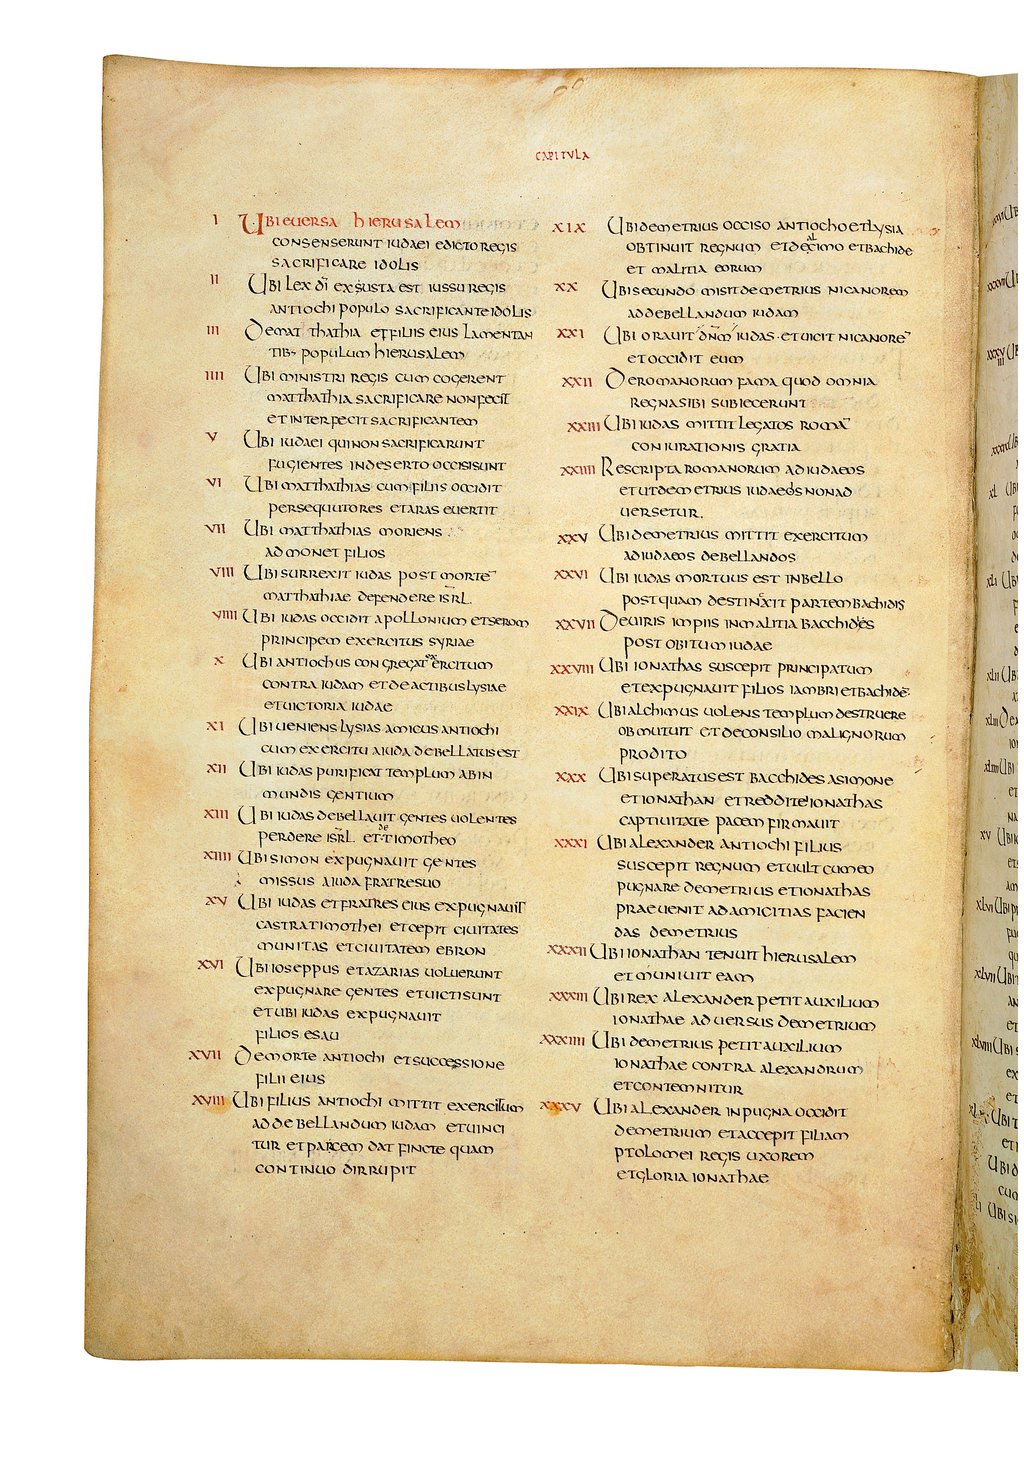 CAPITULA
I Ubi euersa hierusalem
consenserunt iudaei edicto regis
sacrificare idolis
II Ubi lex dī exsusta est iussu regis
antiochi populo sacrificante idolis
III De mat thathia et filiis eius lamentan
tib; populum hierusalem
IIII Ubi ministri regis cum cogerent
matthathia sacrificare non fecit
et interfecit sacrificantem
V Ubi iudaei qui non sacrificarunt
fugientes in deserto occisi sunt
VI Ubi matthathias cum filiis occidit
persequutores et aras euertit
VII Ubi matthathias moriens
admonet filios
VIII Ubi surrexit iudas post morte̅
matthathiae defendere isr̅l.
VIIII Ubi iudas occidit apollonium et serom
principem exercitus syriae
X Ubi antiochus congregat exercitum
contra iudam et de actibus lysiae
et uictoria iudae
XI Ubi ueniens lysias amicus antiochi
cum exercitu a iuda debellatus est
XII Ubi iudas purificat templum ab in
mundis gentium
XIII Ubi iudas debellauit gentes uolentes
perdere isr̅l et de timotheo
XIIII Ubi simon expugnauit gentes
missus a iuda fratre suo
XV Ubi iudas et fratres eius expugnauit
castra timothei et cepit ciuitates
munitas et ciuitatem ebron
XVI Ubi ioseppus et azarias uoluerunt
expugnare gentes et uicti sunt
et ubi iudas expugnauit
filios esau
XVII De morte antiochi et successione
filii eius
XVIII Ubi filius antiochi mittit exercitum
ad debellandum iudam et uinci
tur et pacem dat fincte quam
continuo dirrupit
XIX Ubi demetrius occiso antiocho et lysia
obtinuit regnum et de alcimo et bachide
et malitia eorum
XX Ubi secundo misit demetrius nicanorem
ad debellandum iudam
XXI Ubi orauit dn̅m iudas et uicit nicanore̅
et occidit eum
XXII De romanorum fama quod omnia
regna sibi subiecerunt
XXIII Ubi iudas mittit legatos roma̅
coniurationis gratia
XXIIII Rescripta romanorum ad iudaeos
et ut demetrius iudaeos non ad
uersetur.
XXV Ubi demetrius mittit exercitum
ad iudaeos debellandos
XXVI Ubi iudas mortuus est in bello
postquam destinxit partem bachidis
XXVII De uiris impiis in malitia bacchides
post obitum iudae
XXVIII Ubi ionathas suscepit principatum
et expugnauit filios iambri et bachide̅
XXIX Ubi alchimus uolens templum destruere
obmutuit et de consilio malignorum
prodito
XXX Ubi superatus est bacchides a simone
et ionathan et reddite ionathas
captiuitate pacem firmauit
XXXI Ubi alexander antiochi filius
suscepit regnum et uult cum eo
pugnare demetrius et ionathas
praeuenit ad amicitias facien
das demetrius
XXXII Ubi ionathan tenuit hierusalem
et muniuit eam
XXXIII Ubi rex alexander petit auxilium
ionathae aduersus demetrium
XXXIIII Ubi demetrius petit auxilium
ionathae contra alexandrum
et contemnitur
XXXV Ubi alexander in pugna occidit
demetrium et accepit filiam
ptolomei regis uxorem
et gloria ionathae